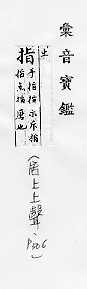 彙音寶鑑
指
手指指示斥指
指点指麾也
(居上上聲、
P306)